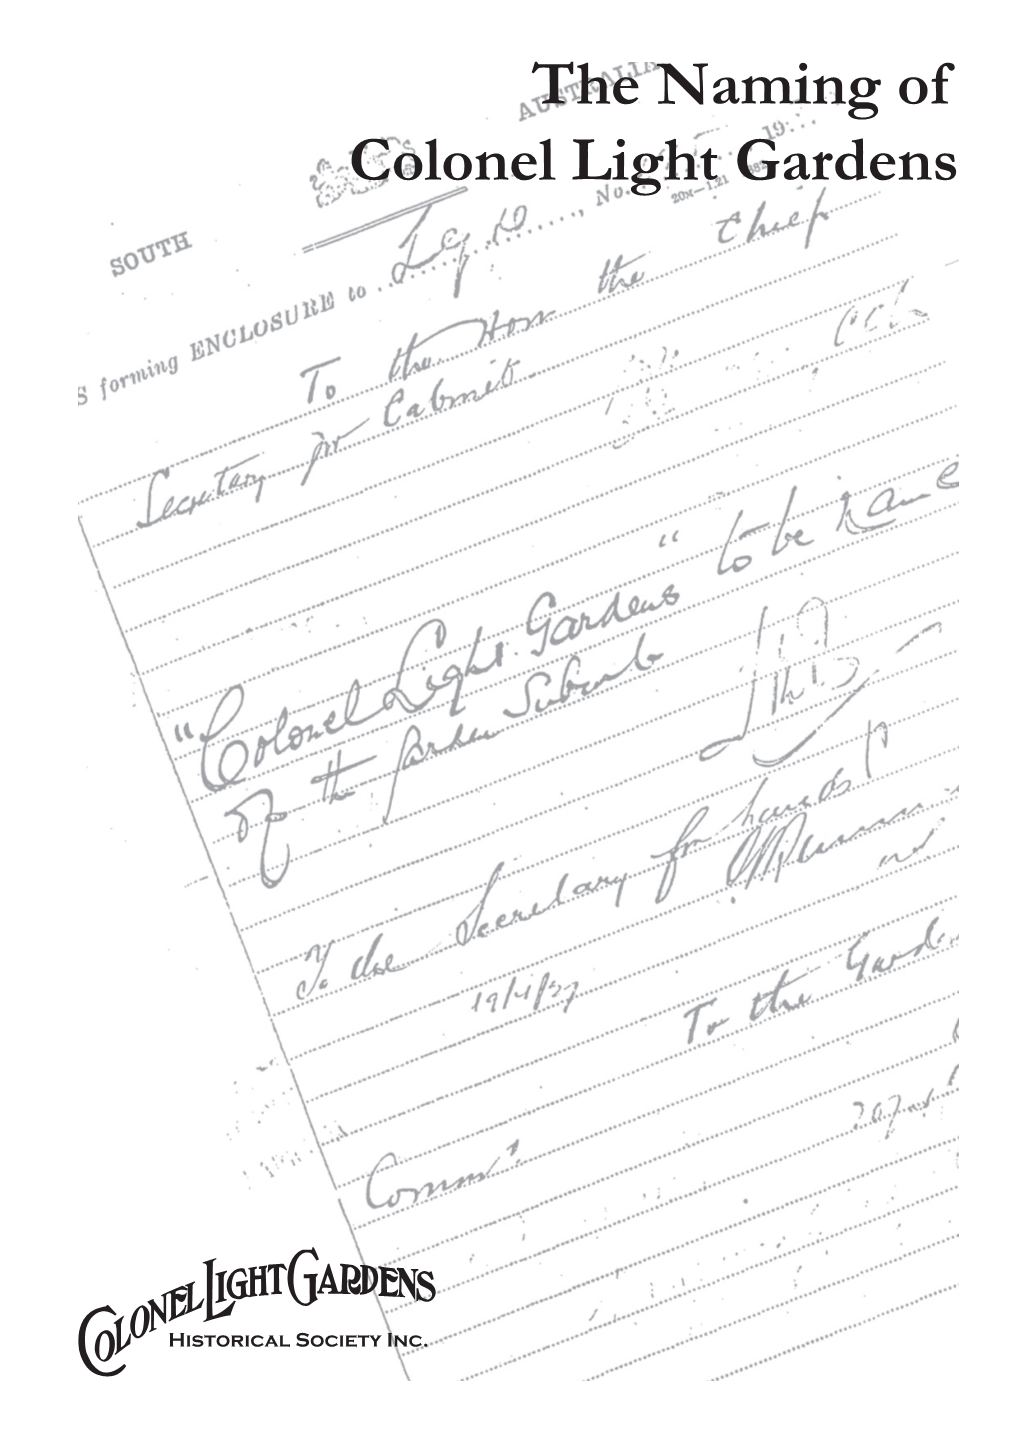 The Naming of
Colonel Light Gardens
SOUTH AUSTRALIA
forming ENCLOSURE to ........, No. ...... 19...
20M—1.21
To the Hon the Chief
Secretary for Cabinet
"Colonel Light Gardens" to be name
of the Garden Suburb
To the Secretary for Lands
19/4/27
To the Garde
Comm
COLONEL LIGHT GARDENS
HISTORICAL SOCIETY INC.